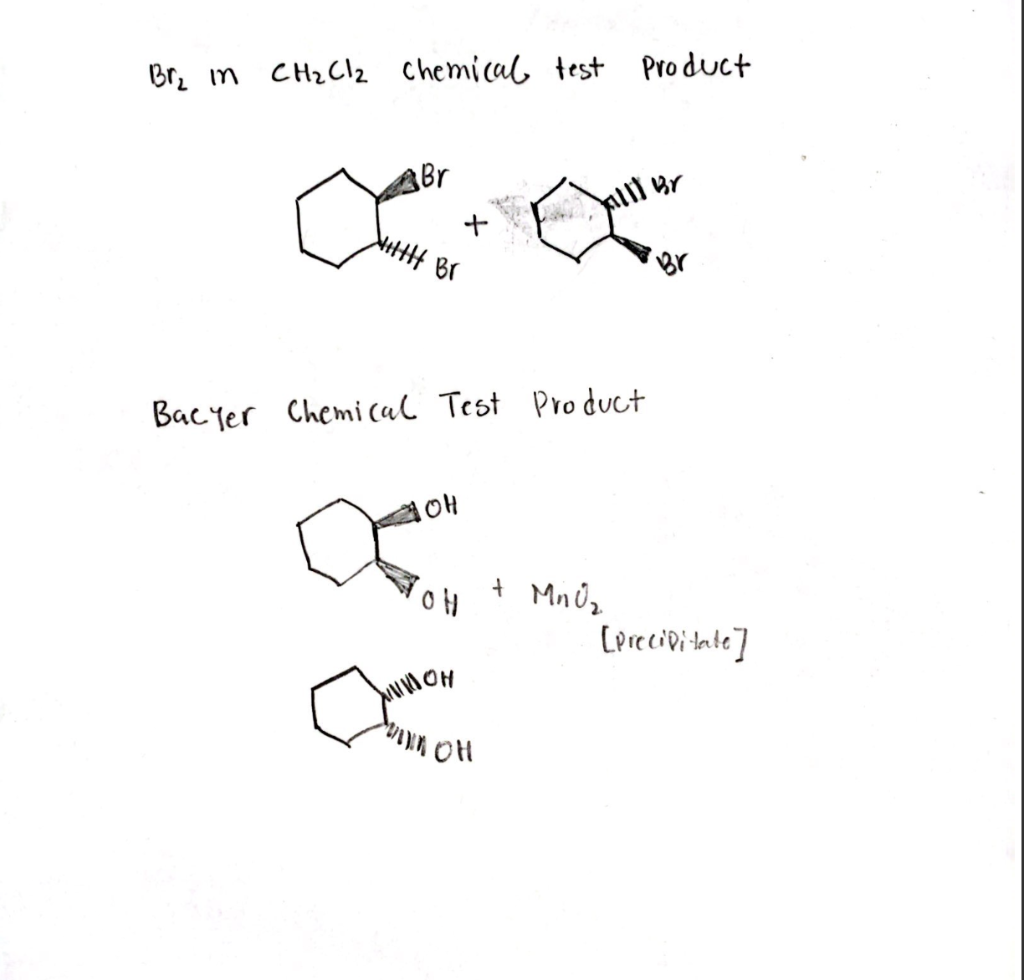 Br₂ in CH₂Cl₂ chemical test product
Br
Br
+
Br
Br
Baeyer Chemical Test Product
OH
OH
+ MnO₂
[precipitate]
OH
OH